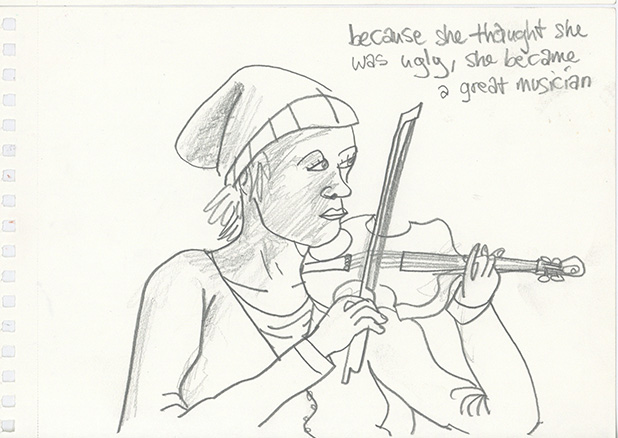 because she thought she
was ugly, she became
a great musician